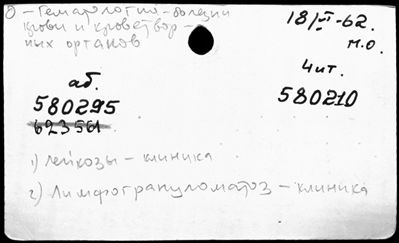 О - Гематология - болезни
крови и кроветвор-
ных органов
18/VI-62.
м.о.
аб.
580295
623561
Чит.
580210
1) лейкозы - клиника
2) Лимфогрануломатоз - клиника